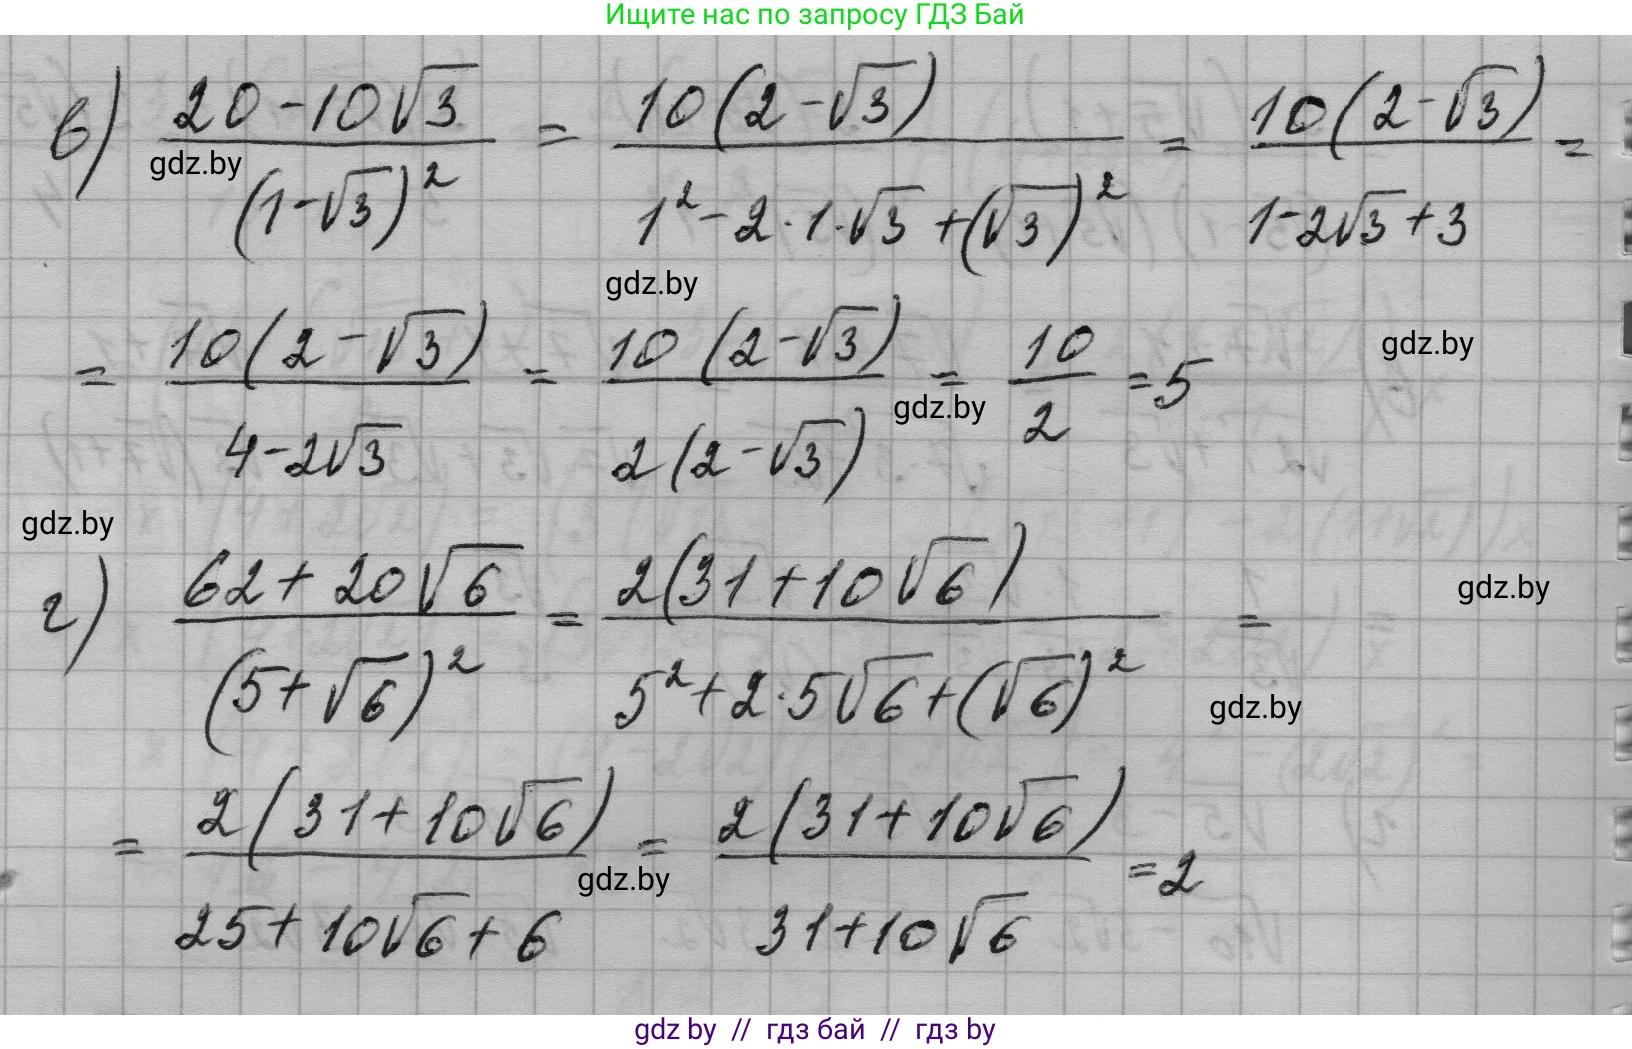 Ищите нас по запросу ГДЗ Бай
в) (20-10√3)/(1-√3)² = 10(2-√3)/(1²-2·1·√3+(√3)²) = 10(2-√3)/(1-2√3+3) =
gdz.by
gdz.by
= 10(2-√3)/(4-2√3) = 10(2-√3)/(2(2-√3)) = 10/2 = 5
gdz.by
gdz.by
gdz.by
г) (62+20√6)/(5+√6)² = 2(31+10√6)/(5²+2·5√6+(√6)²) =
gdz.by
gdz.by
= 2(31+10√6)/(25+10√6+6) = 2(31+10√6)/(31+10√6) = 2
gdz.by
gdz by // гдз бай // гдз by